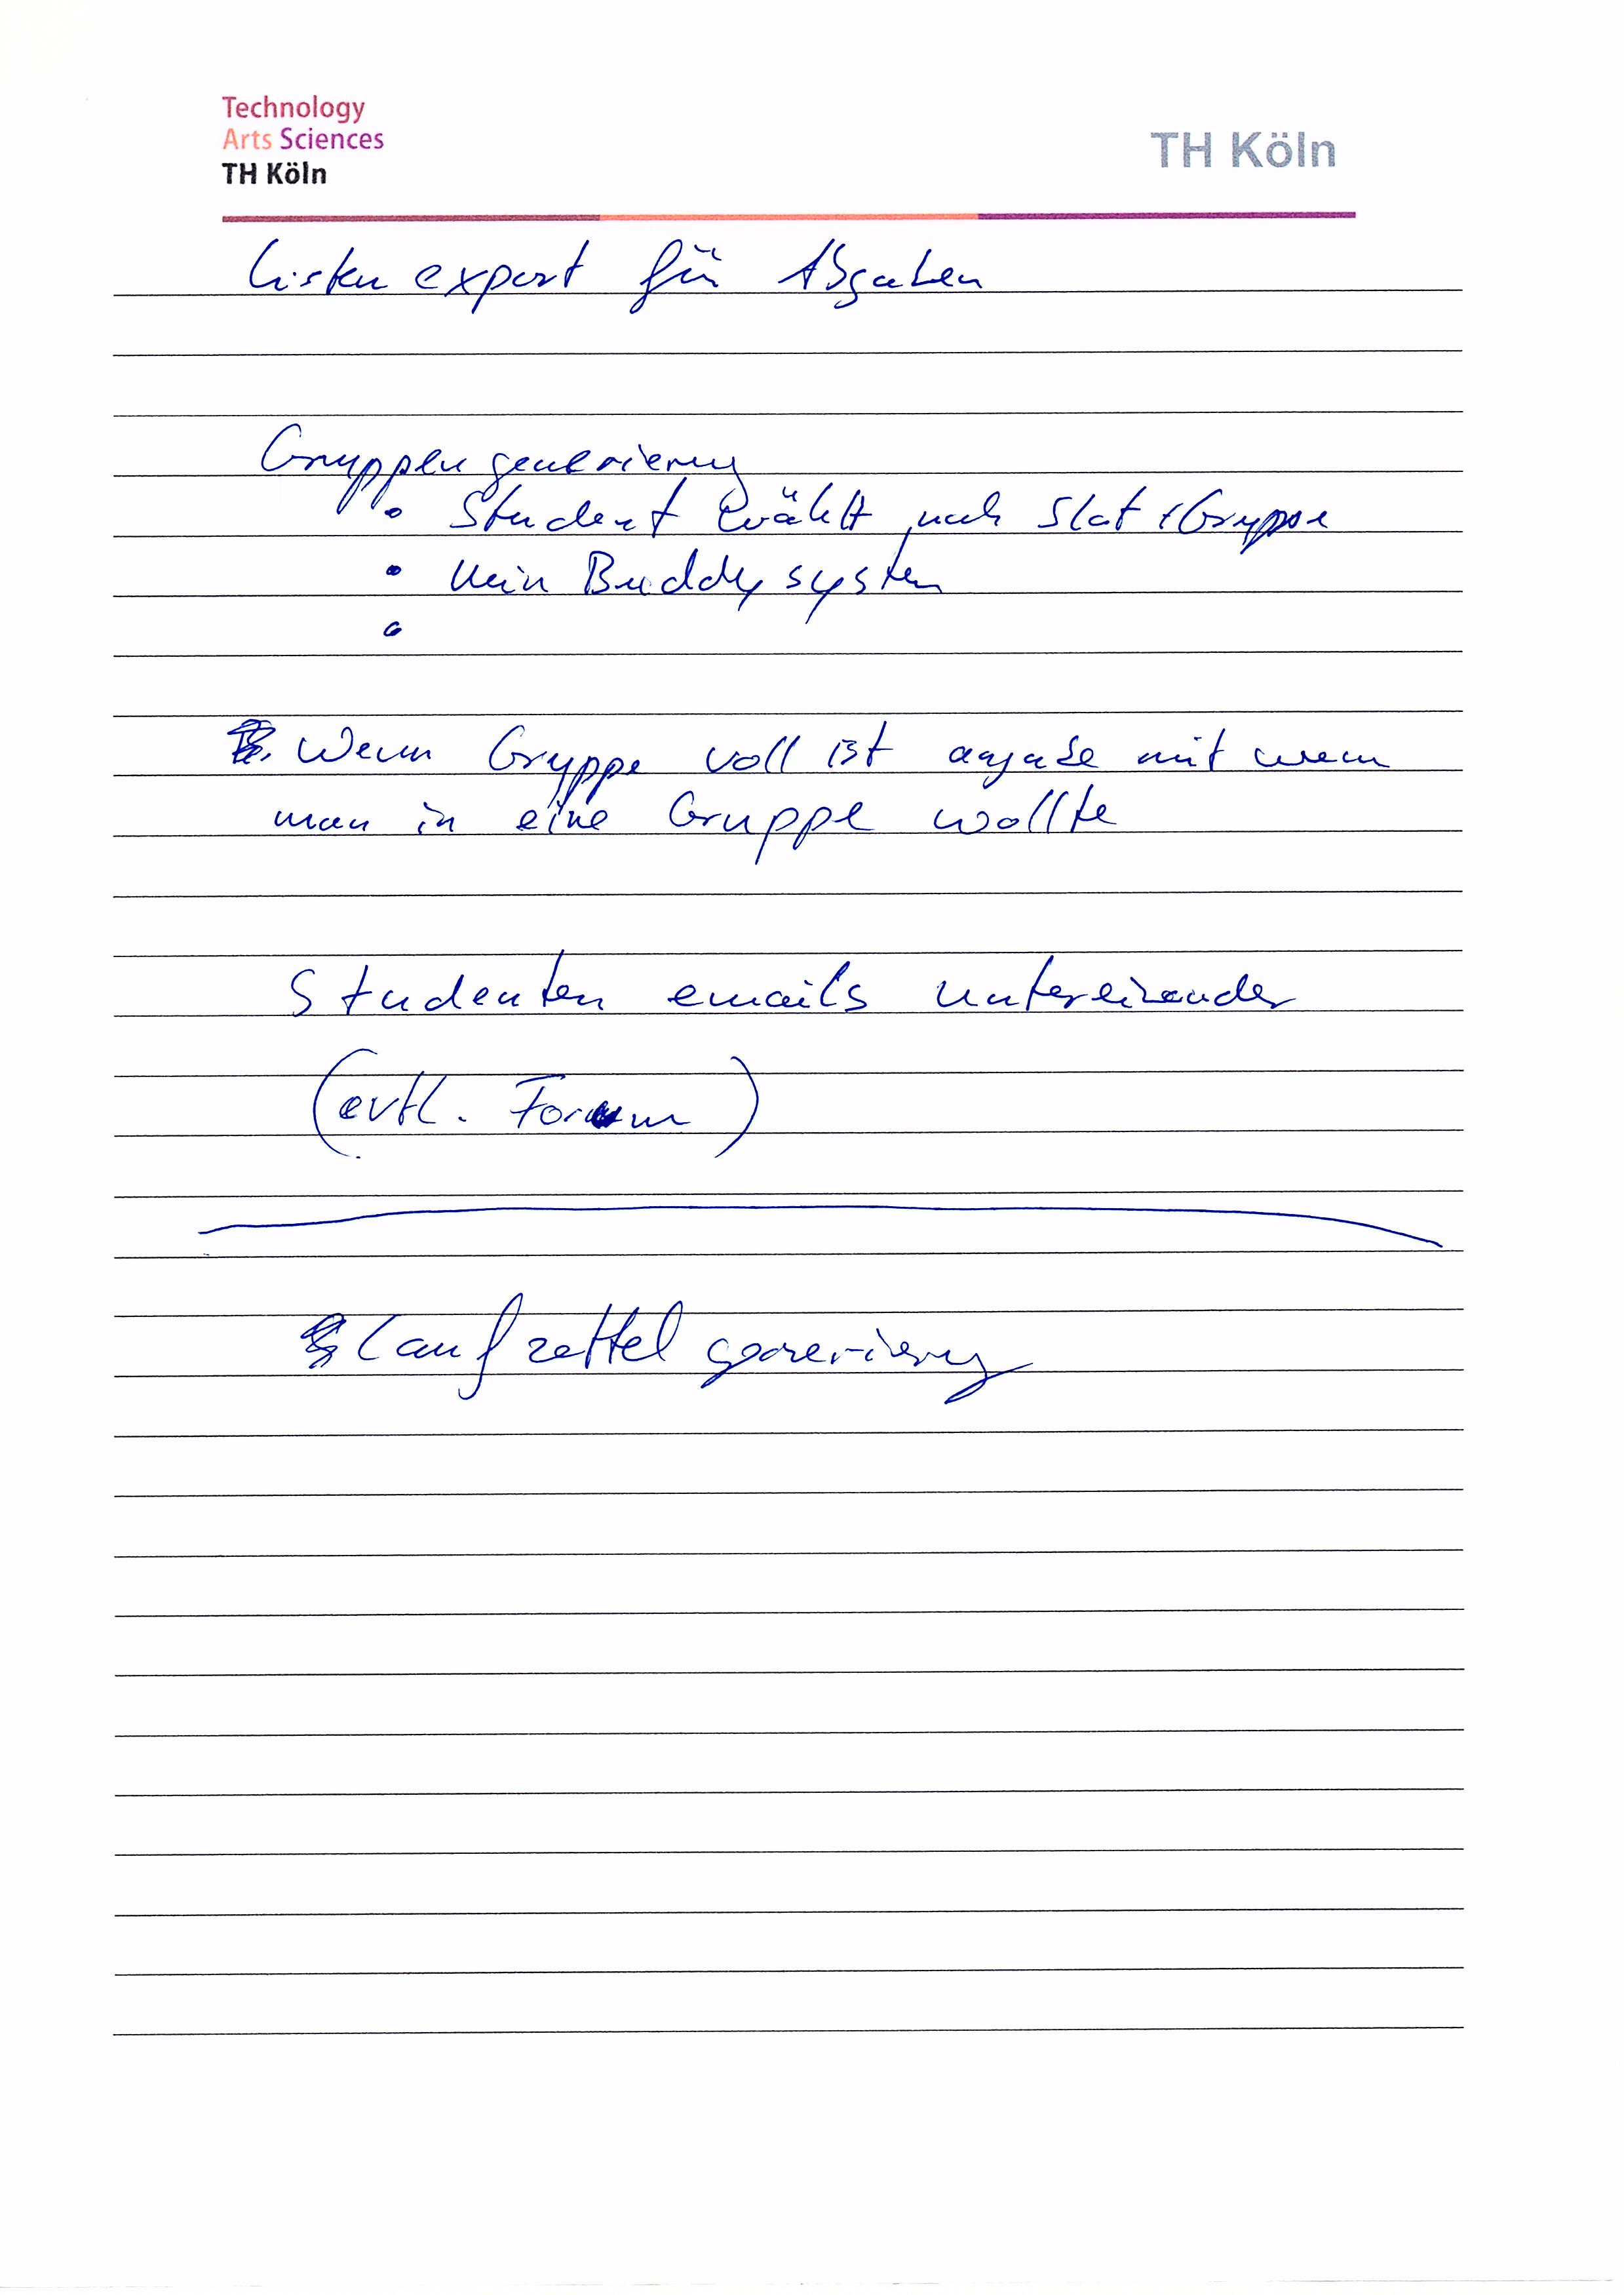 Technology
Arts Sciences
TH Köln
TH Köln
Listen export für Abgaben
Gruppen generierung
• Student wählt nach Slot + Gruppe
• kein Buddysystem
•
Wenn Gruppe voll ist angabe mit wem
man in eine Gruppe wollte
Studenten emails untereinander
(evtl. Forum)
Laufzettel generierung